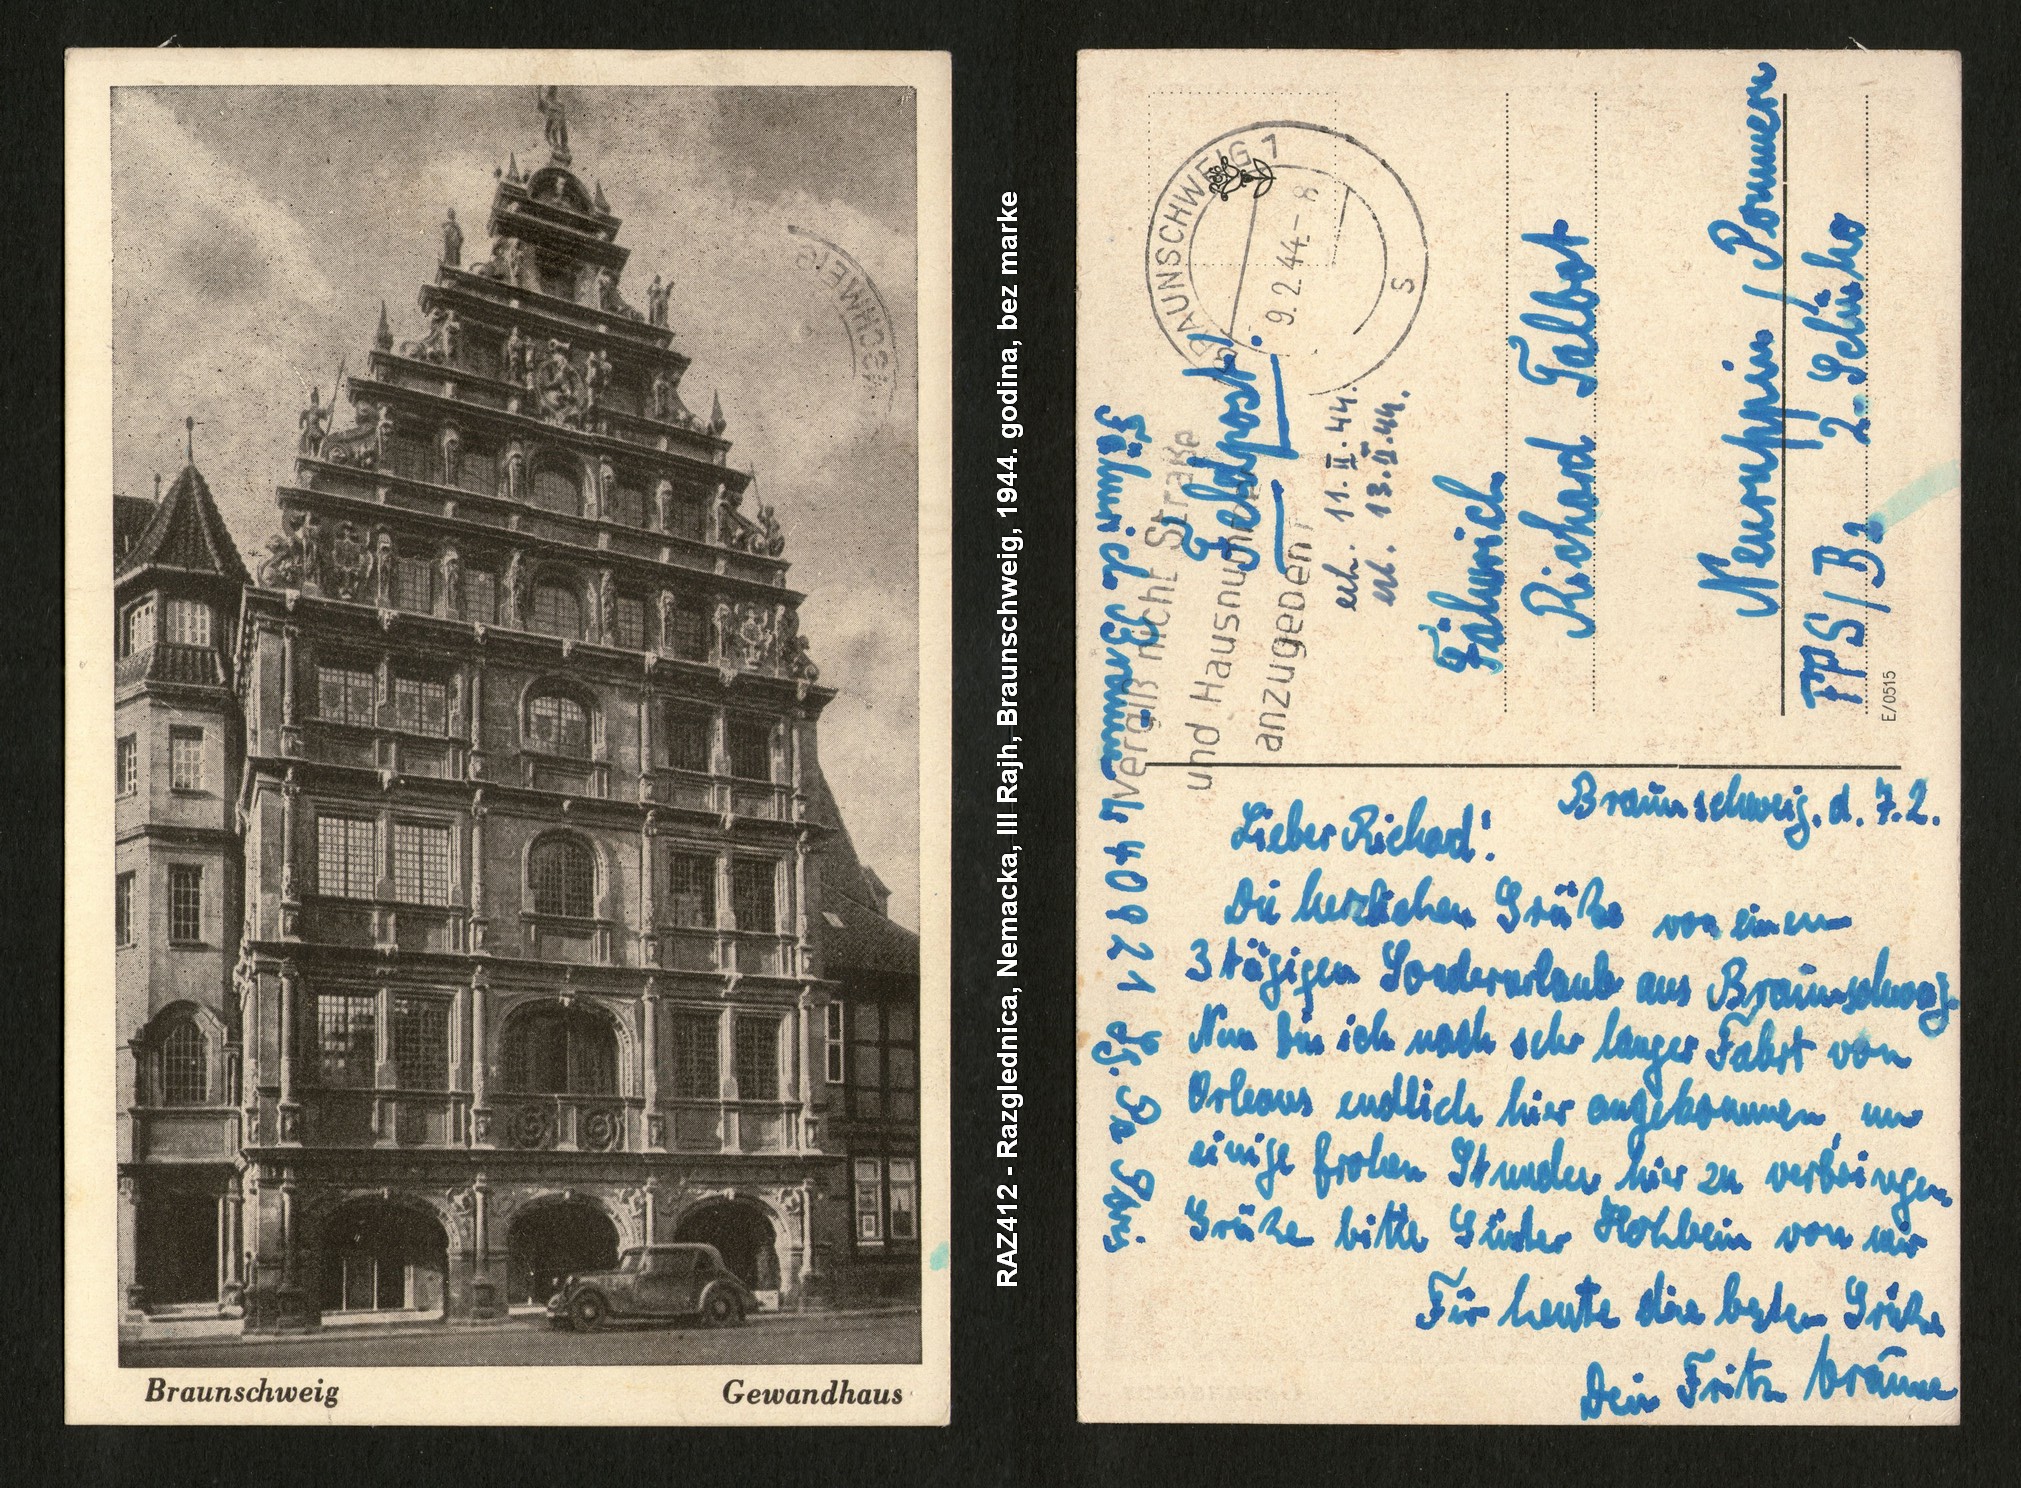 Braunschweig
Gewandhaus
RAZ412 - Razglednica, Nemacka, III Rajh, Braunschweig, 1944. godina, bez marke
BRAUNSCHWEIG 1
9.2.44.-8
s
vergiß nicht Straße
und Hausnummer
anzugeben!
Feldpost!
11.II.44.
13.II.44.
Fähnrich
Richard Talbot
Neuruppin / Pommern
FPS/B2. 2. Schüko
E/0515
Fähnrich Bräune L 40921 Lg. Pa Paris
Braunschweig, d. 7.2.
Lieber Richard!
Die herzlichen Grüße von einem
3 tägigen Sonderurlaub aus Braunschweig.
Nun bin ich nach sehr langer Fahrt von
Orleans endlich hier angekommen, um
einige frohen Stunden hier zu verbringen
Grüße bitte Günter Hohbein von mir
Für heute die besten Grüße
Dein Fritz Bräune